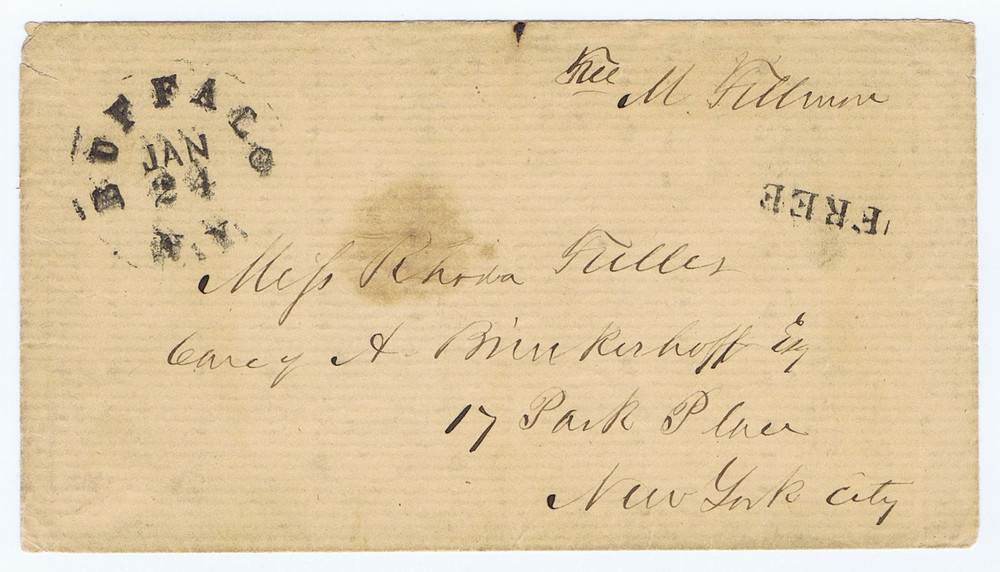 BUFFALO
JAN
24
N.Y.
Free M Fillmore
FREE
Miss Rhoda Fuller
Care of A Brinkerhoff Esq
17 Park Place
New York City